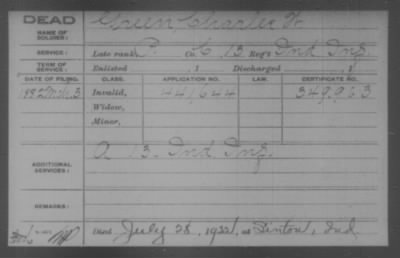 DEAD
NAME OF SOLDIER:
Green, Charles W.
SERVICE:
Late rank P. Co. C, 13 Reg't Ind Inf.
TERM OF SERVICE:
Enlisted , 1 Discharged , 1
DATE OF FILING. CLASS. APPLICATION NO. LAW. CERTIFICATE NO.
1882 3 Invalid, 441,644 349,963
Widow,
Minor,
ADDITIONAL SERVICES:
A 13. Ind Inf.
REMARKS:
Died July 28, 192 , at Linton, Ind